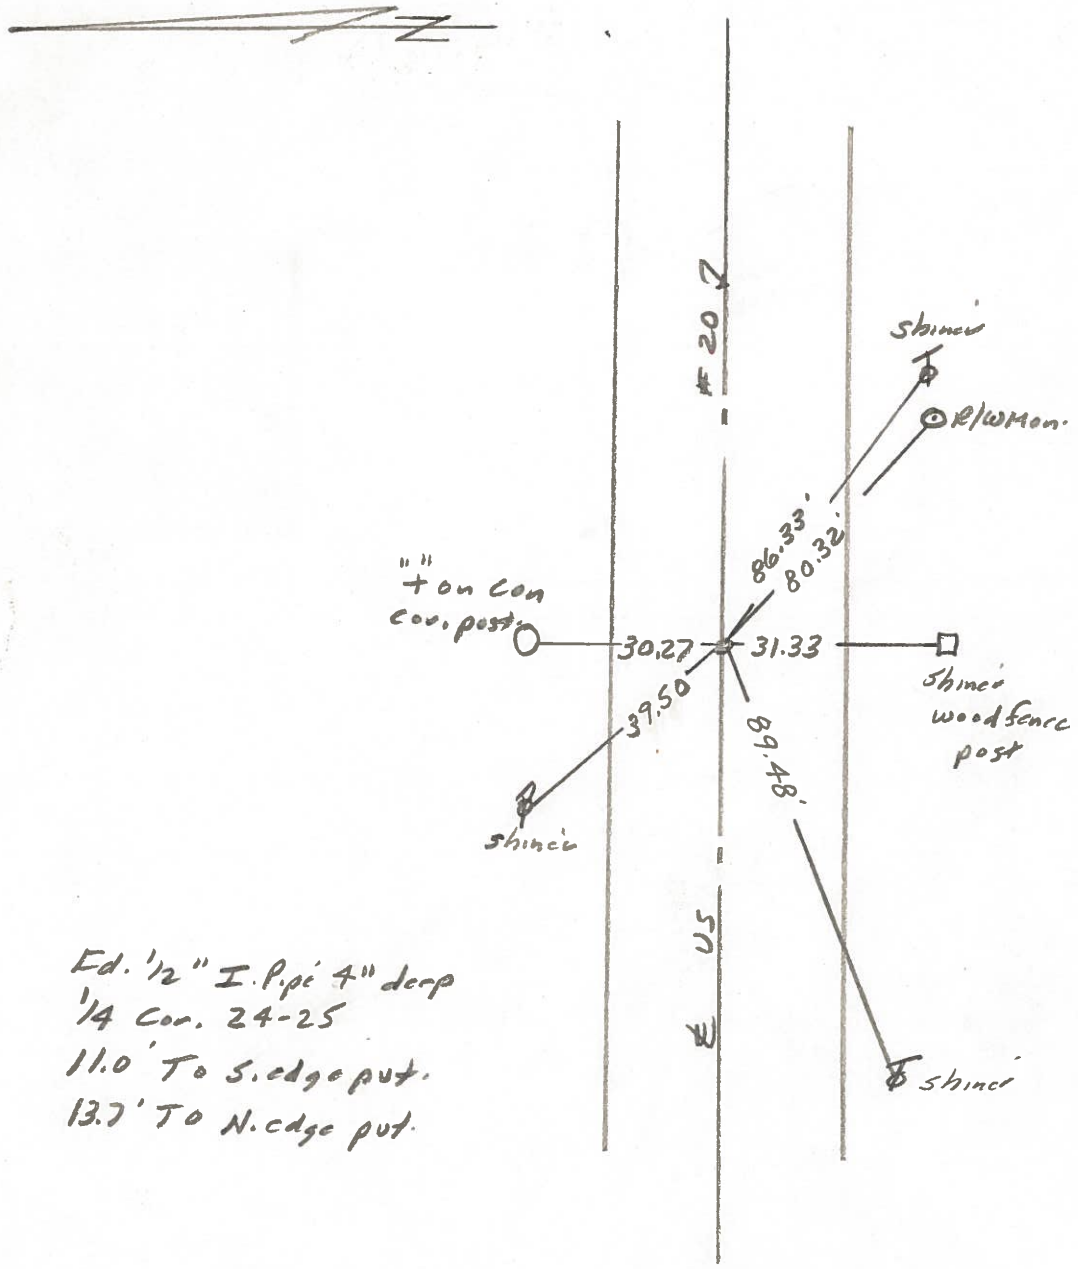 N
# 20
shiner
R/W Mon.
86.33'
80.32'
"+" on Con
Cor. post.
30.27
31.33
39.50
shiner
wood fence
post
89.48'
shiner
℄ US
Fd. 1/2" I. Pipe 4" deep
1/4 Cor. 24-25
11.0' To S. edge pvt.
13.7' To N. edge pvt.
shiner